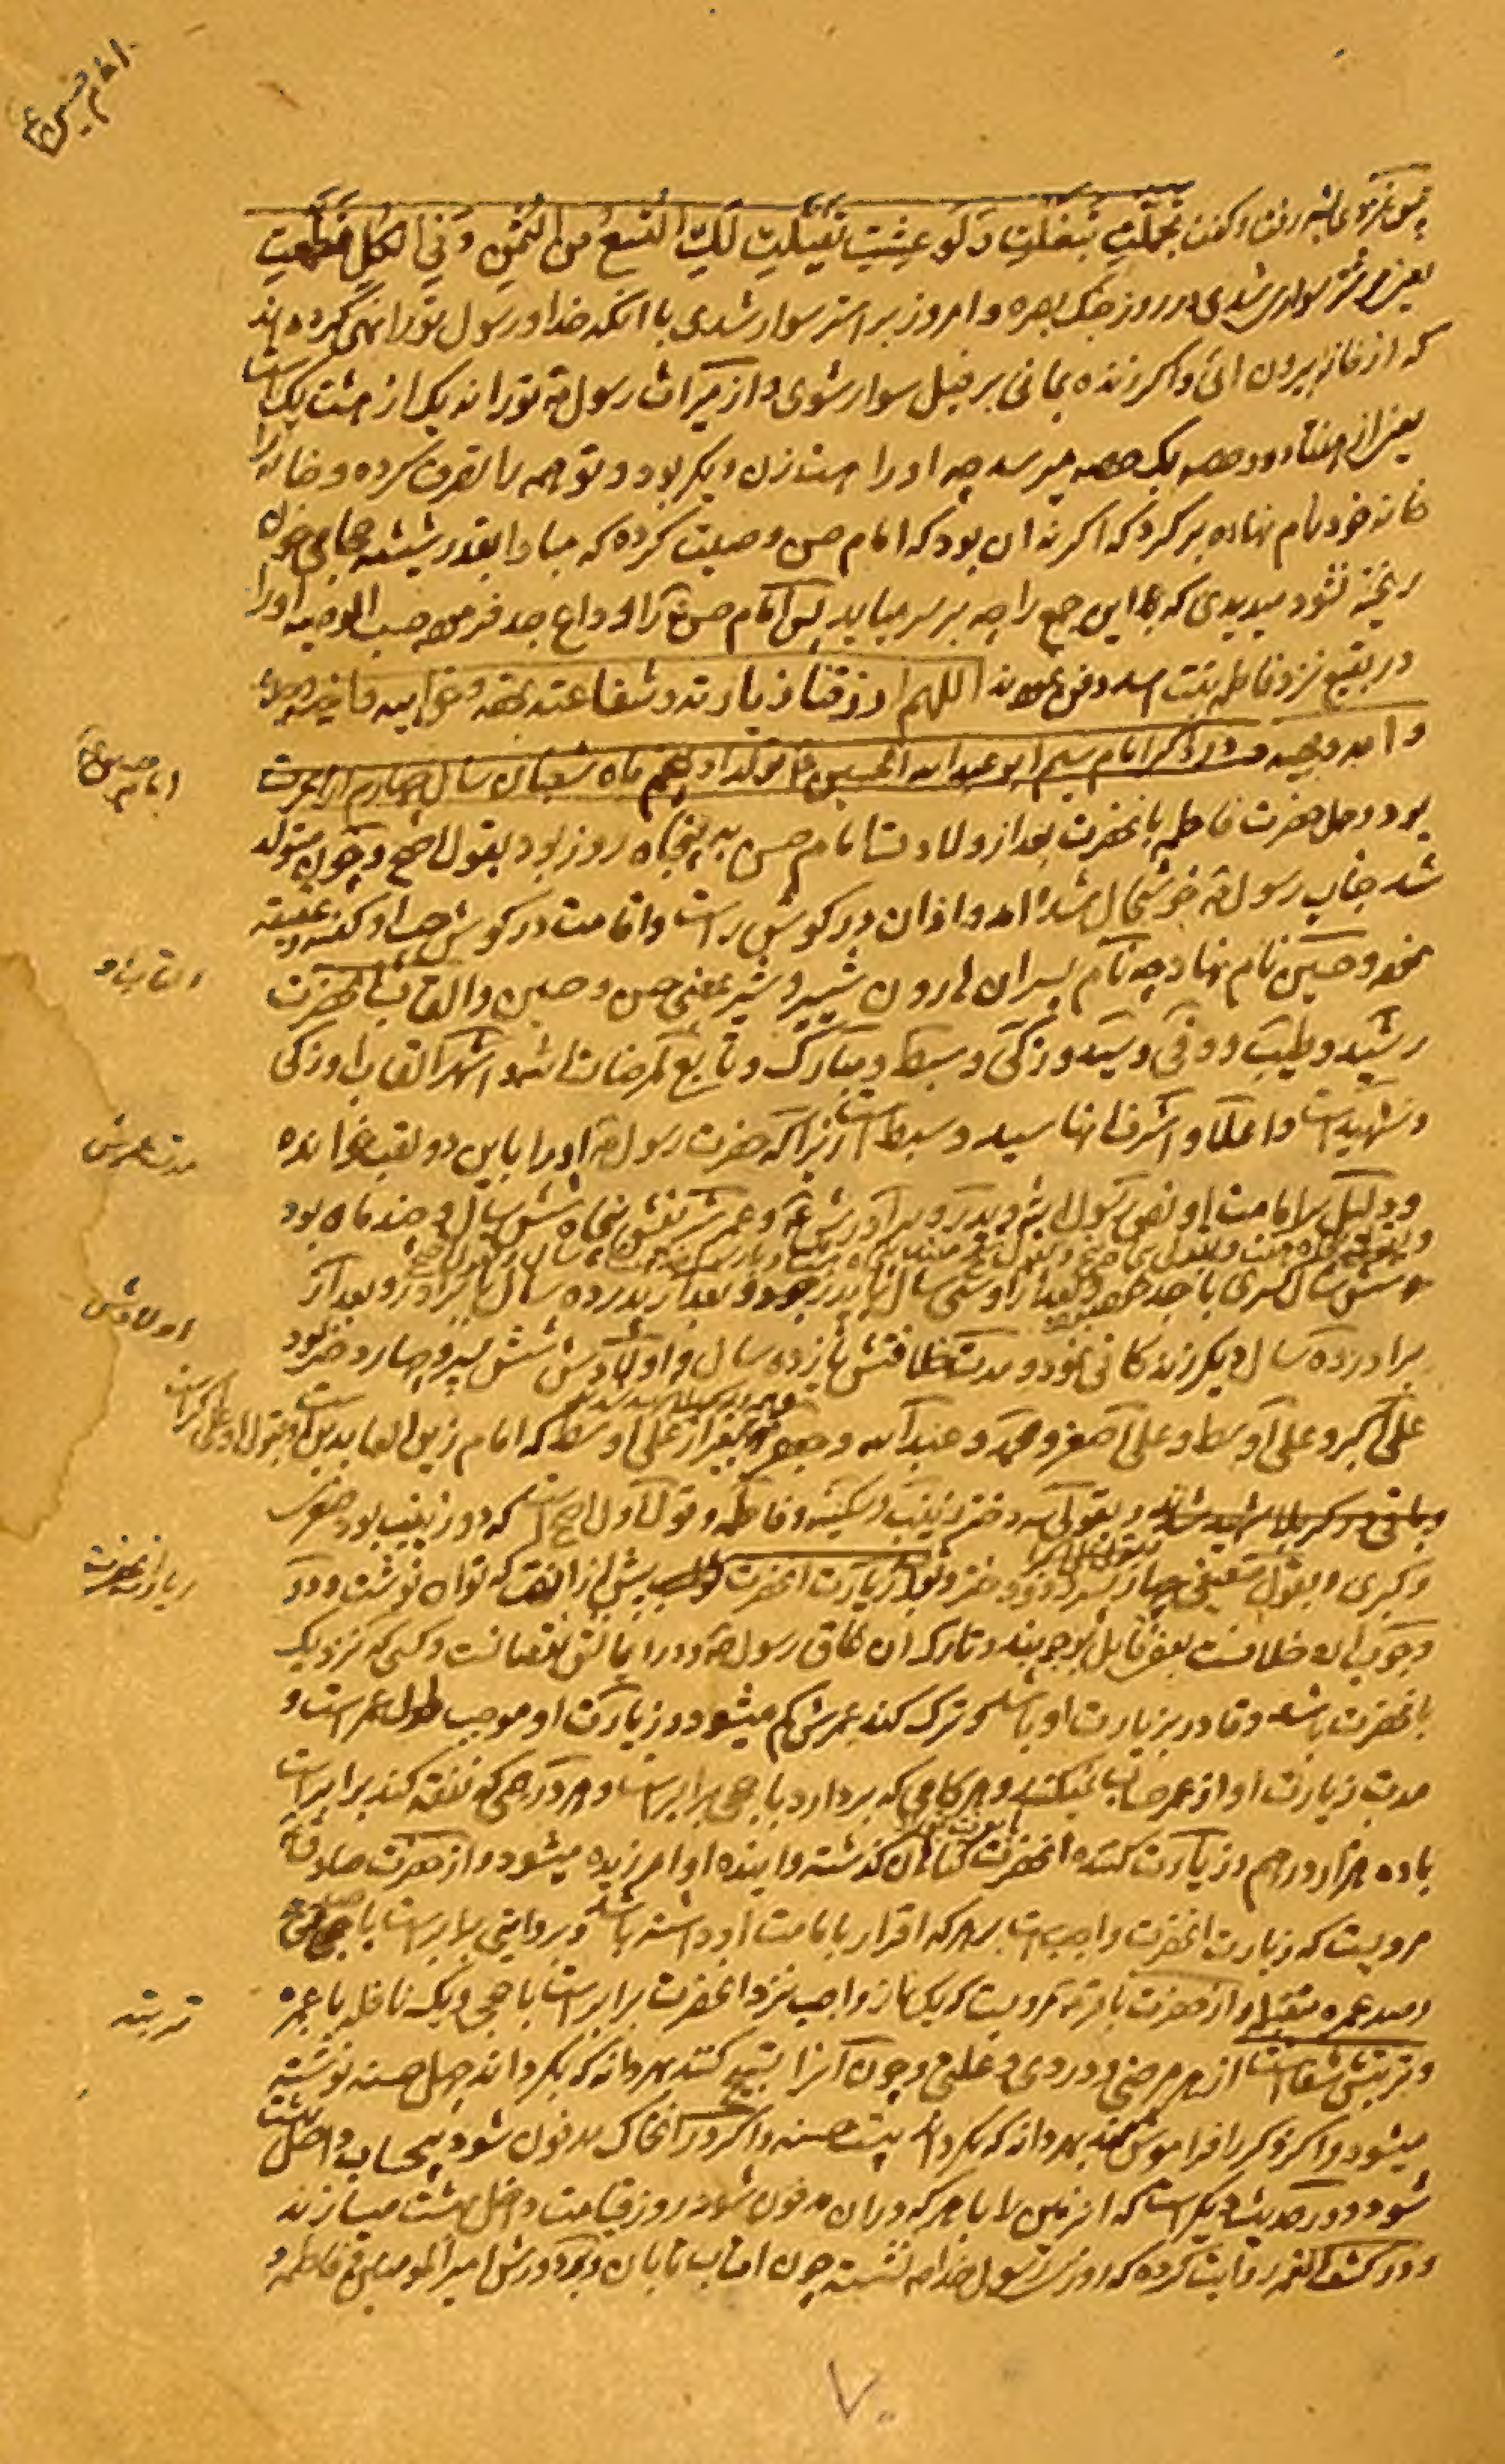 امام حسین ع
تجملت تبغلت و لو عشت تفیلت لک التسع من الثمن و فی الکل
یعنی بر شتر سوار شدی در روز جنک بصره و امروز بر استر سوار شدی با انکه خدا و رسول تو را نهی کرده اند
که از خانه بیرون ائی و اکر زنده بمانی بر فیل سوار شوی و از میراث رسول ص تو را نه یک از هشت یک است
یعنی از هفتاد و دو حصه یک حصه میرسد چه او را هشت زن دیکر بود و تو همه را تصرف کرده و خانه را
خانه خود نام نهاده بر کرد که اکر نه ان بود که امام حسن وصیت کرده که مبادا بقدر شیشه حجامی خون
ریخته شود میدیدی که بما این جمع را چه بر سر میاید پس امام حسن ع را وداع جد فرموده حسب الوصیه او را
در بقیع نزد فاطمه بنت اسد دفن نمودند اللهم ارزقنا زیارته و شفاعته بحقه و بحق ابیه و اخیه و جده
و امه و بنیه در ذکر امام سیم ابو عبد الله الحسین ع تولد او پنجم ماه شعبان سال چهارم از هجرت
امام حسین ع
بود و حمل حضرت فاطمه بانحضرت بعد از ولادت امام حسن به پنجاه روز بود بقول اصح و چون متولد
شد جناب رسول ص خوشحال شد امد و اذان در کوش راست و اقامت در کوش چپ او کفته و عقیقه
نمود و حسین نام نهاد چه نام پسران هارون شبر و شبیر بمعنی حسن و حسین و القاب انحضرت
القاب او
رشید و طیب و وفی و سید و زکی و سبط و مبارک و تابع لمرضات الله و اشهر القاب او زکی
و شهید است و اعلا و اشرف انها سید و سبط است زیرا که حضرت رسول ص او را باین دو لقب خوانده
مدت عمرش
و دلیل بر امامت او نص رسول الله و پدر و برادرش ع و عمر شریفش پنجاه شش سال و چند ماه بود
شش سال کسری با جد و بعد از او سی سال با پدر بود و بعد از پدر ده سال با برادر و بعد از
اولادش
برادر ده سال دیکر زندکانی نمود و مدت خلافتش یازده سال و اولادش شش پسر و چهار دختر بود
علی اکبر و علی اوسط و علی اصغر و محمد و عبد الله و جعفر بغیر از علی اوسط که امام زین العابدین است
و بقولی سه دختر زینب و سکینه و فاطمه و قول اول اصح است که دو زینب بود صغری
و کبری و بقول بعضی چهار پسر و دو دختر و ثواب زیارت انحضرت بیش از انست که توان نوشت و در
زیارت انحضرت
وجوب ان خلافست بعضی قایل بوجوبند و تارک ان عاق رسول ص و در ایمانش نقصانست و کسی که نزدیک
بانحضرت باشد و قادر بزیارت او باشد و ترک کند عمرش کم میشود و زیارت او موجب طول عمر است و
مدت زیارت او از عمر حساب نمیکنند و هر کامی که بردارد با حجی برابر است و هر درهمی که نفقه کند برابر است
با ده هزار درهم و زیارت کننده انحضرت کناهان کذشته و اینده او امرزیده میشود و از حضرت صادق ع
مرویست که زیارت انحضرت واجب است بر هر که اقرار بامامت او داشته باشد و بروایتی برابر است با صد حج
و صد عمره مقبله و از حضرت باقر ع مرویست که یک نماز واجب نزد انحضرت برابر است با حجی و یک نافله با عمره
تربتش
و تربتش شفا است از هر مرضی و دردی و علتی و چون انرا تسبیح کنند بهر دانه که بکرداند چهل حسنه نوشته
میشود و اکر ذکر را فراموش کند بهر دانه که بکرداند بیست حسنه و اکر در انخاک مدفون شود بیحساب داخل بهشت
شود و در حدیث دیکر است که انزمین را با هر که در ان مدفون شود روز قیامت داخل بهشت میسازند
و در کشف الغمه روایت کرده که روزی رسول خدا ص نشسته چون افتاب تابان و بر دورش امیر المومنین ع فاطمه و
۷۰